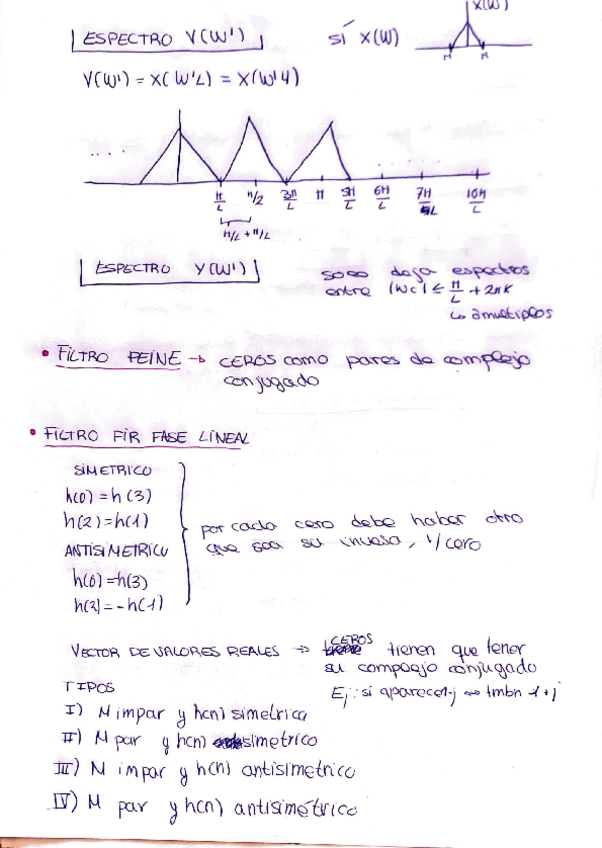 ESPECTRO V(W') sí X(W) X(W)
V(W') = X(W'L) = X(W'4)
....
π/L π/2 3π/L π 5π/L 6π/L 7π/L 10π/L
π/L + π/L
ESPECTRO Y(W') solo deja espectros
entre |Wc| ≤ π/L + 2πk
↳ a multiplos
• FILTRO PEINE → CEROS como pares de complejo
conjugado
• FILTRO FIR FASE LINEAL
SIMETRICO
h(0) = h(3)
h(2) = h(1)
por cada cero debe haber otro
que sea su inversa, 1/cero
ANTISIMETRICO
h(0) = h(3)
h(2) = -h(1)
VECTOR DE VALORES REALES → CEROS tienen que tener
su complejo conjugado
TIPOS
Ej: si aparece 1-j ⇒ tmbn 1+j
I) M impar y h(n) simetrica
II) M par y h(n) simetrico
III) M impar y h(n) antisimetrico
IV) M par y h(n) antisimétrico